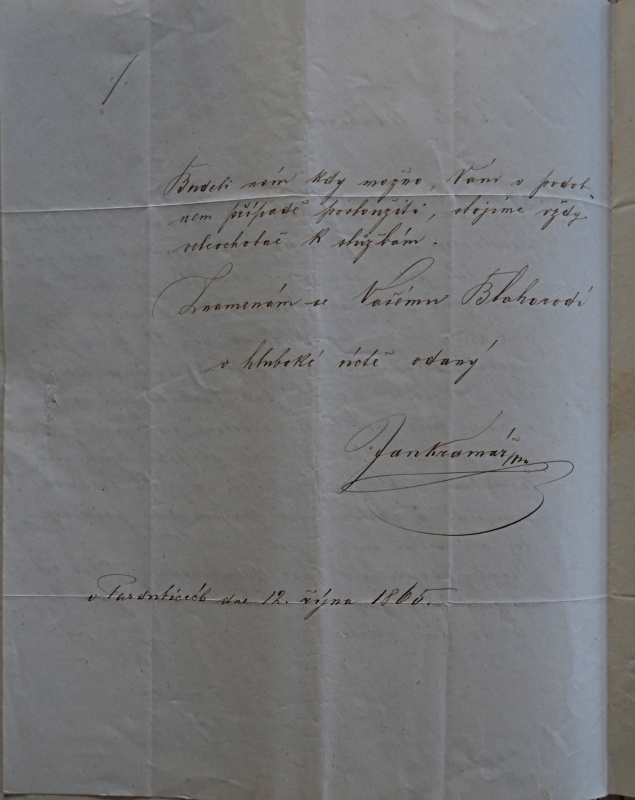 Budeli nám kdy možno, Vám v podob-
ném případě posloužiti, stojíme vždy
veleochotně k službám.
Znamenám se Vašému Blahorodí
v hluboké úctě odaný
Jan Kramář
v Pardubicích dne 12. října 1865.